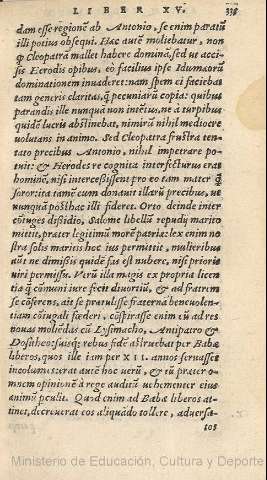 LIBER XV.
dam esse regionẽ ab Antonio, se enim paratũ
illi potius obsequi. Hac autẽ moliebatur, non
ꝙ Cleopatrã mallet habere dominã, sed ut occi-
sis Herodis opibus, eo facilius ipse Idumæorũ
dominationem inuaderet: nam spem ei faciebat
tam generis claritas, ꝗ̃ pecuniarũ copia: quibus
parandis ille nunquã non intẽtus, ne à turpibus
quidẽ lucris abstinebat, nimirũ nihil mediocre
uolutans in animo. Sed Cleopatra frustra ten-
tato precibus Antonio, nihil impetrare po-
tuit: & Herodes re cognita interfecturus erat
hominẽ, nisi intercessissent pro eo tam mater ꝗ̃
soror: ita tamẽ cum donauit illarũ precibus, ne
nunquã posthac illi fideret. Orto deinde inter
cõiuges disidio, Salome libellũ repudij marito
mittit, præter legitimũ morẽ patriæ: lex enim no
stra solis maritis hoc ius permittit, mulieribus
aũt ne dimissis quidẽ fas est nubere, nisi priore
uiri permissu. Verũ illa magis ex propria licen
tia ꝗ̃ cõmuni iure fecit diuortiũ, & ad fratrem
se cõferens, ait se prætulisse fraternã beneuolen-
tiam cõiugali fœderi. cõspirasse enim eũ ad res
nouas moliẽdas cũ Lysimacho, Antipatro &
Dositheo: suisq́; rebus fidẽ astruebat per Babæ
liberos, quos ille iam per XII. annos seruasset
incolumes: erat autẽ hoc uerũ, & tũ præter o-
mnem opinionẽ à rege auditũ uehementer eius
animũ perculit. Quod enim ad Babæ liberos at-
tinet, decreuerat eos aliquãdo tollere, aduersa-
tos
Ministerio de Educación, Cultura y Deporte